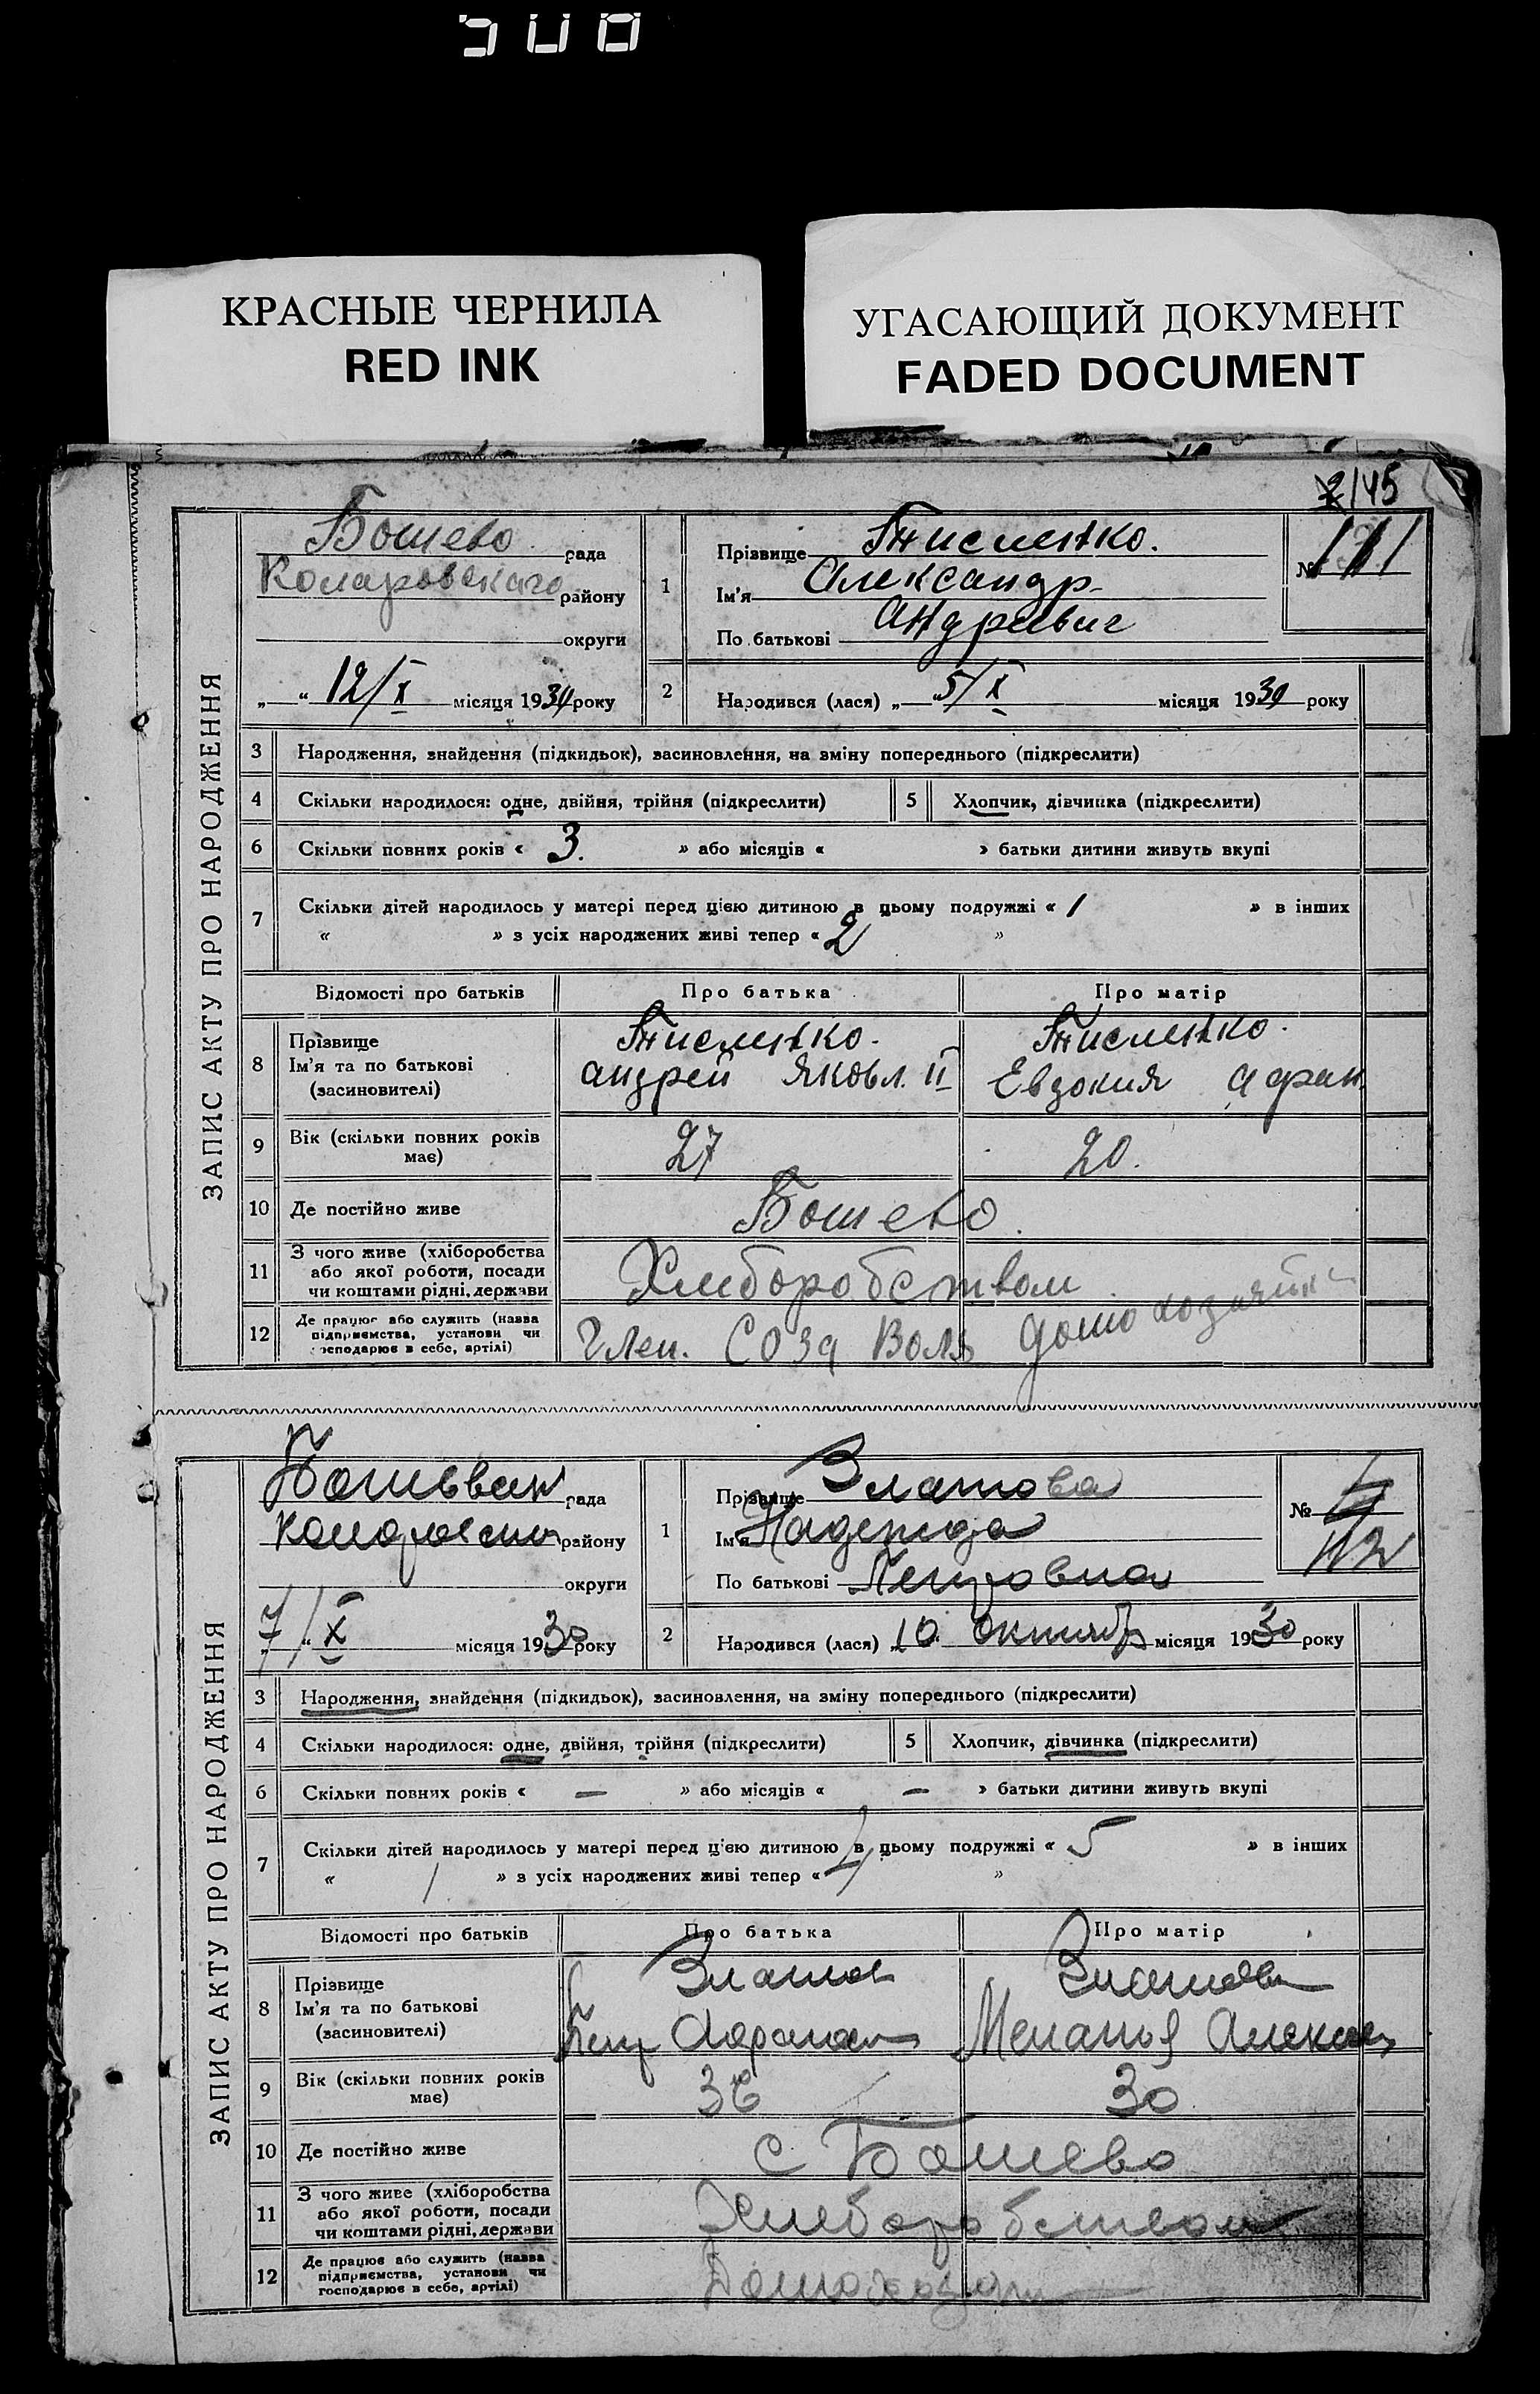 500
КРАСНЫЕ ЧЕРНИЛА
RED INK
УГАСАЮЩИЙ ДОКУМЕНТ
FADED DOCUMENT
2/145
ЗАПИС АКТУ ПРО НАРОДЖЕННЯ
Ботево рада
Коларовскаго району
округи
„ “ 12/X місяця 1930 року
1
Прізвище Тисленко.
Ім'я Александр
По батькові Андреевич
№ 111
2 Народився (лася) „ 5/X місяця 1930 року
3 Народження, знайдення (підкидьок), засиновлення, на зміну попереднього (підкреслити)
4 Скільки народилося: одне, двійня, трійня (підкреслити) 5 Хлопчик, дівчинка (підкреслити)
6 Скільки повних років « 3. » або місяців « » батьки дитини живуть вкупі
7 Скільки дітей народилось у матері перед цією дитиною в цьому подружжі « 1 » в інших
« » з усіх народжених живі тепер « 2 »
Відомості про батьків Про батька Про матір
8 Прізвище
Ім'я та по батькові
(засиновителі)
Тисленко.
Андрей Яковл. II
Тисленко.
Евдокия Афан.
9 Вік (скільки повних років має) 27 20.
10 Де постійно живе Ботево.
11 З чого живе (хліборобства
або якої роботи, посади
чи коштами рідні, держави
Хлеборобством
12 Де працює або служить (назва
підприємства, установи чи
господарює в себе, артілі)
Член. СОЗа Воля домохозяйка
ЗАПИС АКТУ ПРО НАРОДЖЕННЯ
рада
району
округи
7/X місяця 1930 року
1
Прізвище Златова
Ім'я Надежда
По батькові Петровна
№ 112
2 Народився (лася) „ 10 “ октябр місяця 1930 року
3 Народження, знайдення (підкидьок), засиновлення, на зміну попереднього (підкреслити)
4 Скільки народилося: одне, двійня, трійня (підкреслити) 5 Хлопчик, дівчинка (підкреслити)
6 Скільки повних років « — » або місяців « — » батьки дитини живуть вкупі
7 Скільки дітей народилось у матері перед цією дитиною в цьому подружжі « 5 » в інших
« / » з усіх народжених живі тепер « 4 »
Відомості про батьків Про батька Про матір
8 Прізвище
Ім'я та по батькові
(засиновителі)
Златов
Петр Афанас
Златова
Меланья Алексее
9 Вік (скільки повних років має) 36 30
10 Де постійно живе с Ботево
11 З чого живе (хліборобства
або якої роботи, посади
чи коштами рідні, держави
Хлеборобством
12 Де працює або служить (назва
підприємства, установи чи
господарює в себе, артілі)